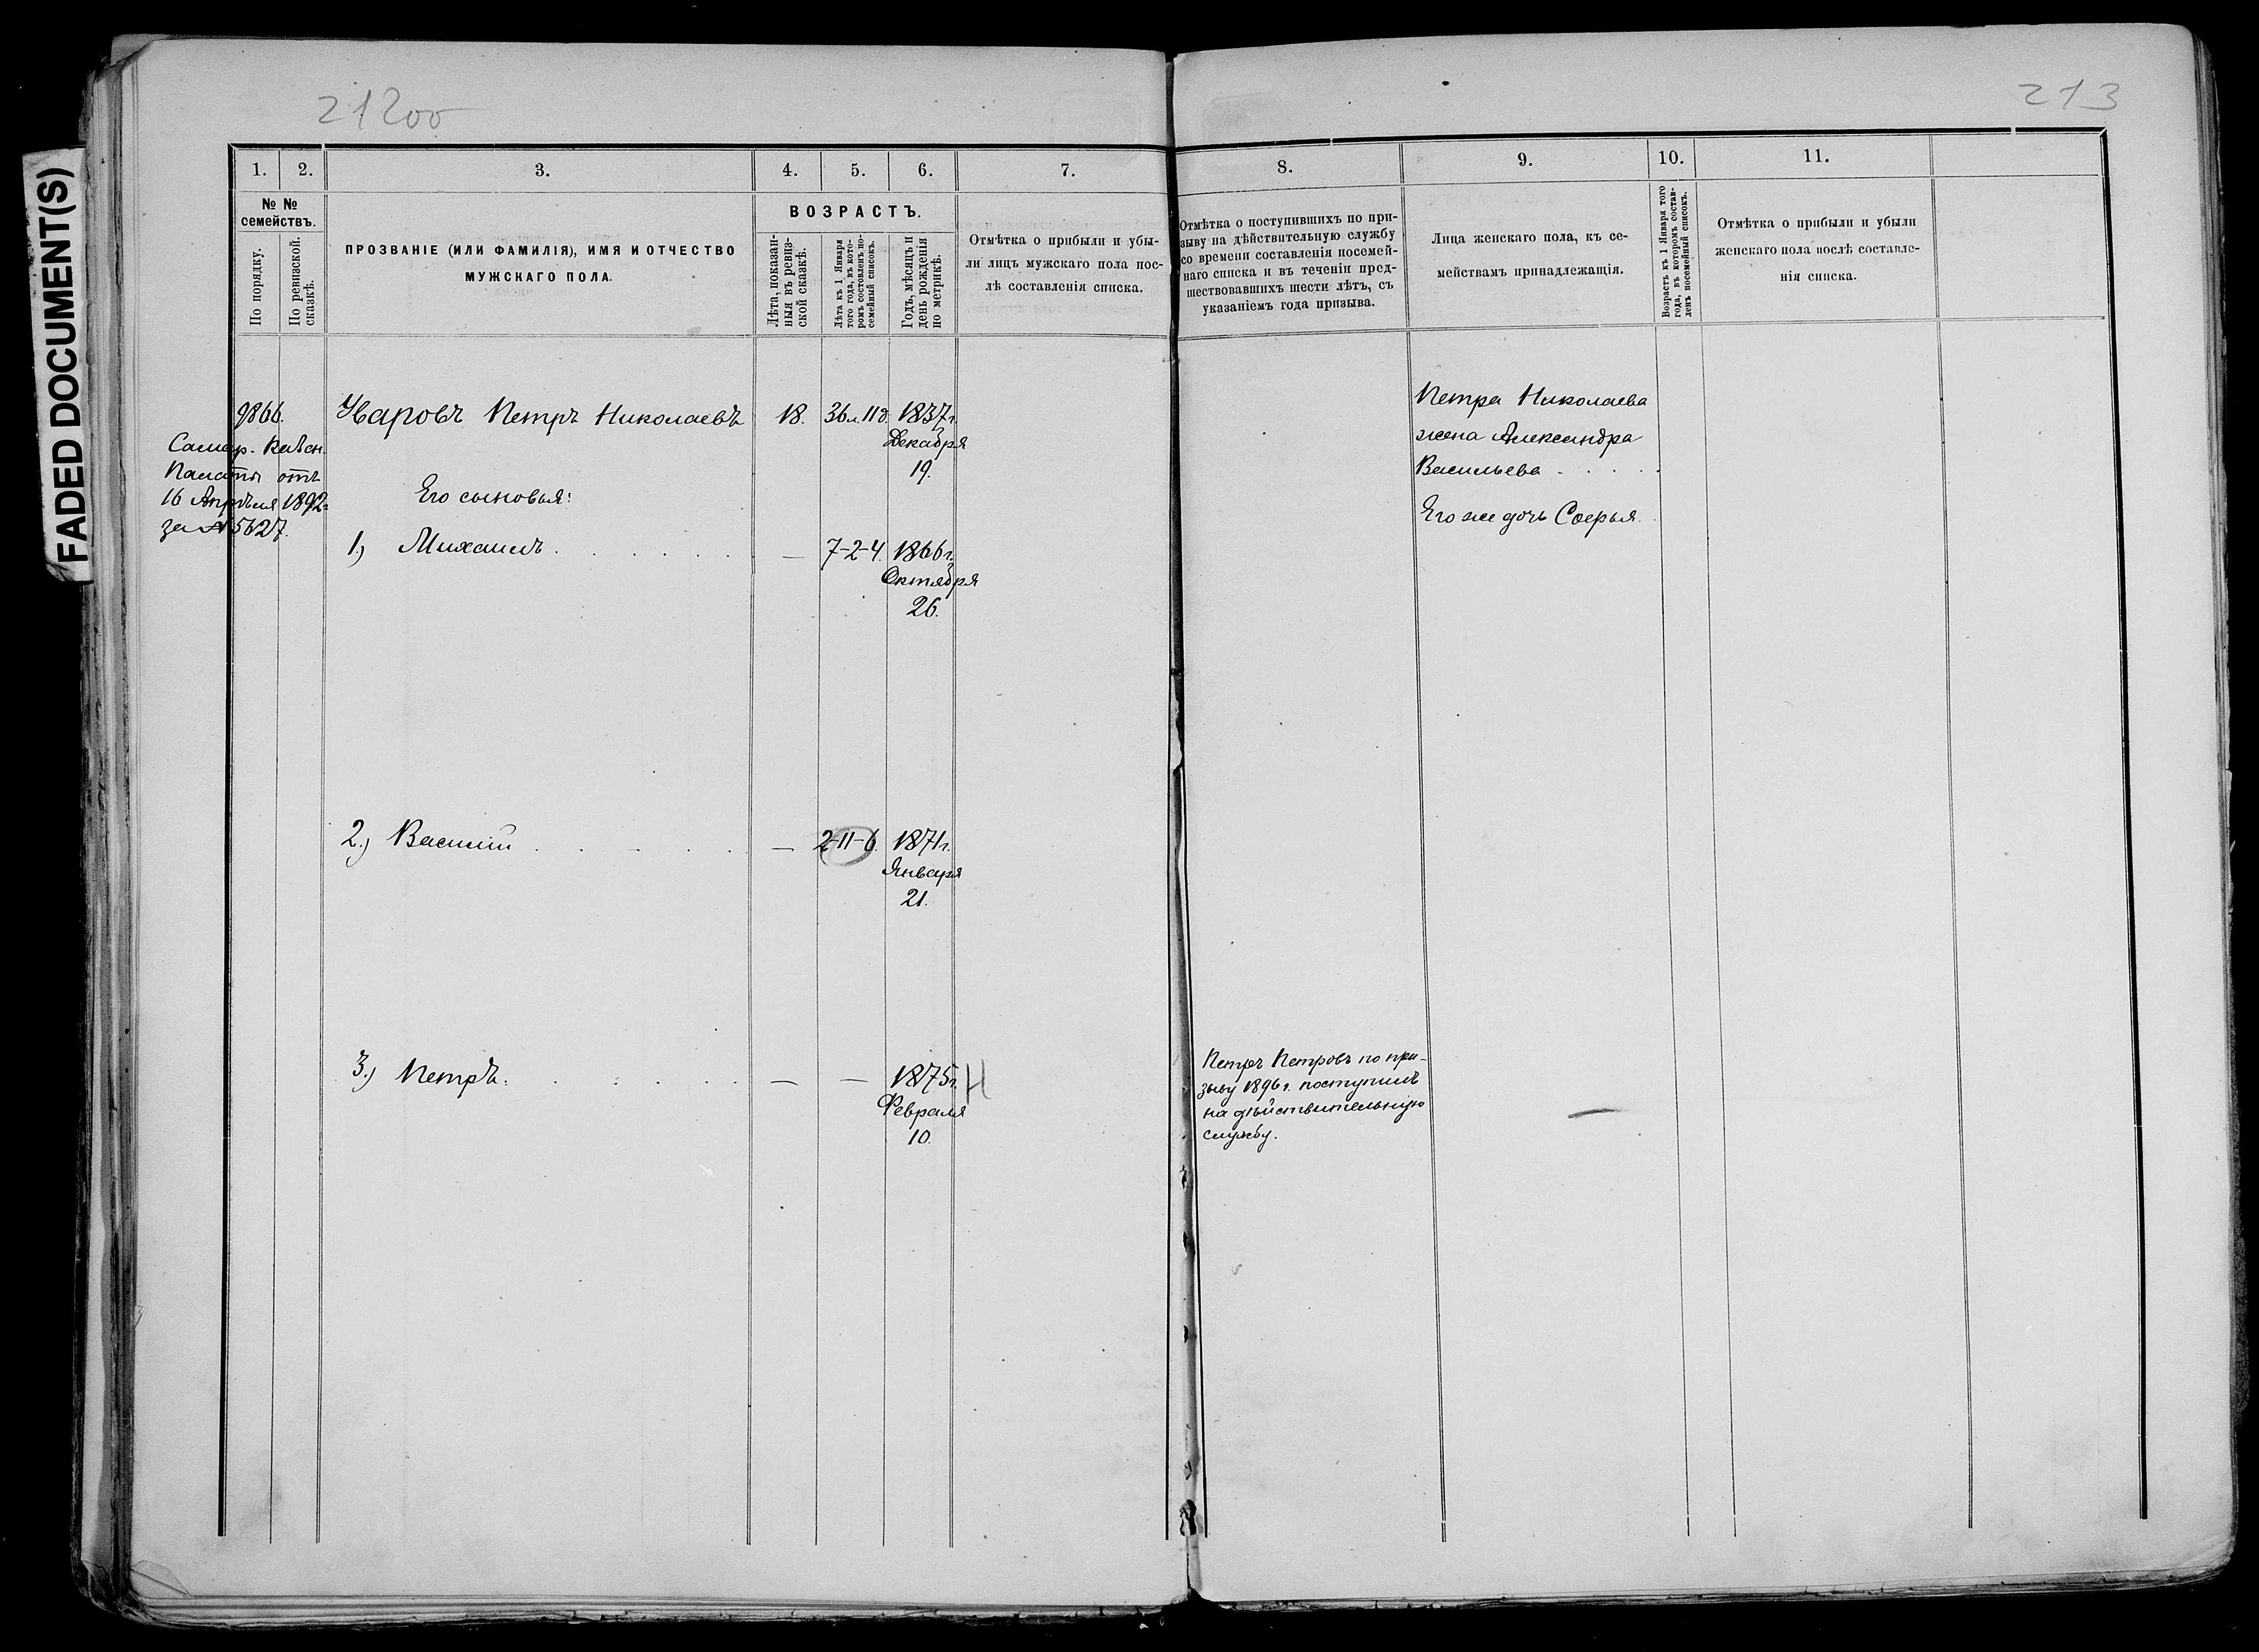 21200
213
FADED DOCUMENT(S)
1.
2.
3.
4.
5.
6.
7.
8.
9.
10.
11.
№ №
семействъ.
По порядку.
По ревизской.
сказкѣ.
ПРОЗВАНІЕ (ИЛИ ФАМИЛІЯ), ИМЯ И ОТЧЕСТВО
МУЖСКАГО ПОЛА.
ВОЗРАСТЪ.
Лѣта, показан-
ныя въ ревиз-
ской сказкѣ.
Лѣта къ 1 Января
того года, въ кото-
ромъ составленъ по-
семейный списокъ.
Годъ, мѣсяцъ и
день рожденія
по метрикѣ.
Отмѣтка о прибыли и убы-
ли лицъ мужскаго пола пос-
лѣ составленія списка.
Отмѣтка о поступившихъ по при-
зыву на дѣйствительную службу
со времени составленія посемей-
наго списка и въ теченіи пред-
шествовавшихъ шести лѣтъ, съ
указаніемъ года призыва.
Лица женскаго пола, къ се-
мействамъ принадлежащія.
Возрастъ къ 1 Января того
года, въ которомъ состав-
ленъ посемейный списокъ.
Отмѣтка о прибыли и убыли
женскаго пола послѣ составле-
нія списка.
9866.
Самар. Казен.
Палаты отъ
16 Апрѣля 1892
за № 5627.
Уваровъ Петръ Николаевъ
18.
36 л. 11 д.
1837 г.
Декабря
19.
Его сыновья:
1.) Михаилъ . . . . . . — 7-2-4. 1866 г.
Октября
26.
2.) Василій . . . . . — 2-11-6. 1871 г.
Января
21.
3.) Петръ. . . . . . — — 1875 г. Н
Февраля
10.
Петръ Петровъ по при-
зыву 1896 г. поступилъ
на дѣйствительную
службу.
Петра Николаева
жена Александра
Васильева . . . .
Его же дочь Софья.
—